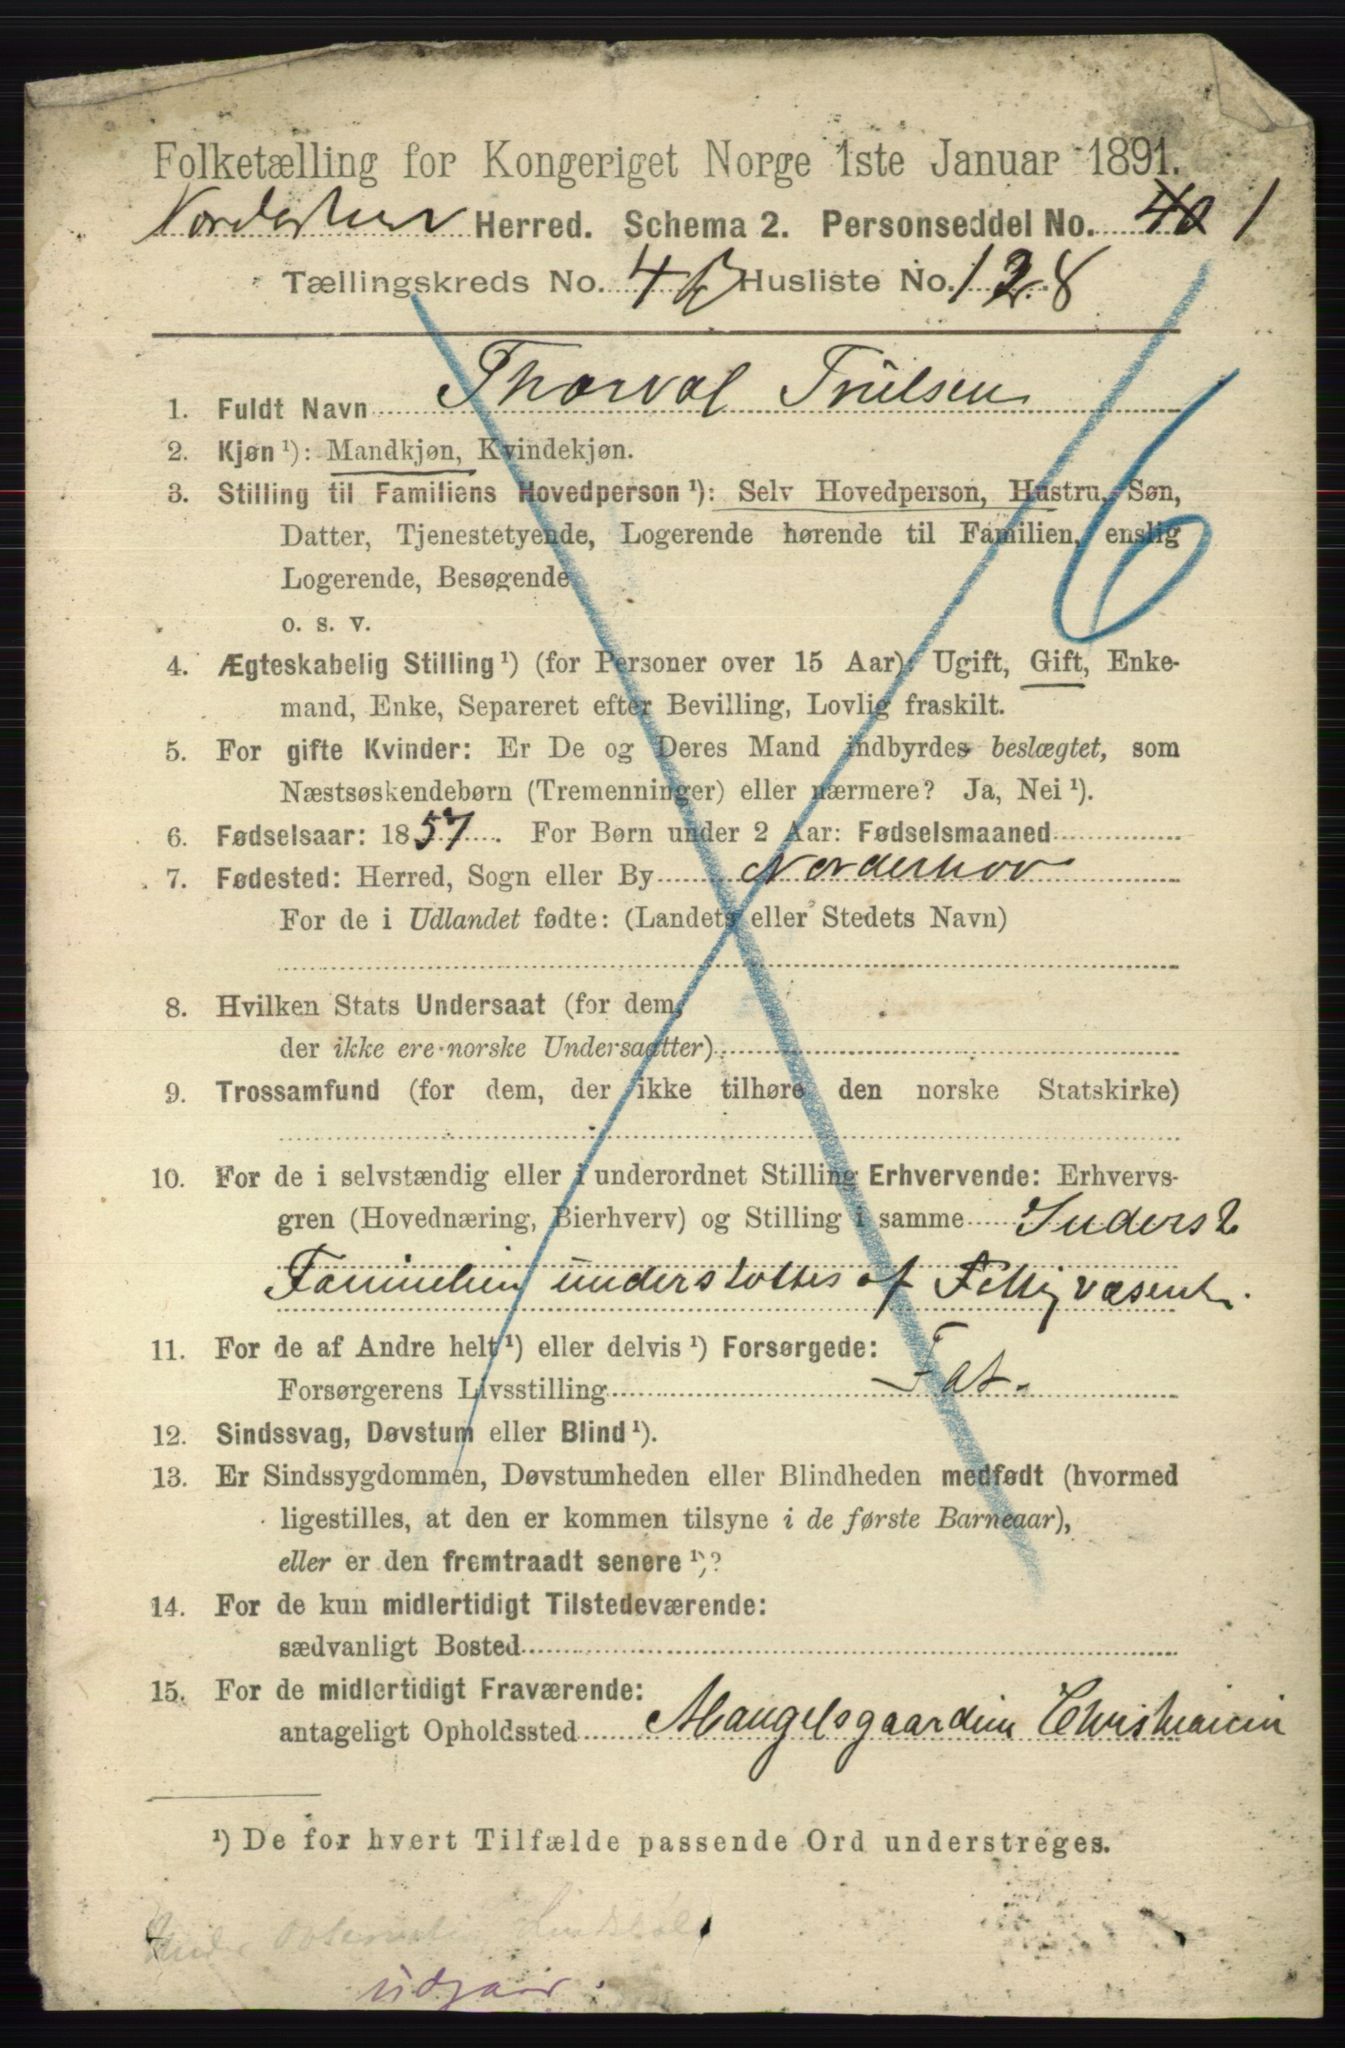 Folketælling for Kongeriget Norge 1ste Januar 1891.
Norderhov Herred. Schema 2. Personseddel No. 1
Tællingskreds No. 4 b Husliste No. 128
1. Fuldt Navn Thorval Trulsen
2. Kjøn ¹): Mandkjøn, Kvindekjøn.
3. Stilling til Familiens Hovedperson ¹): Selv Hovedperson, Hustru, Søn,
Datter, Tjenestetyende, Logerende hørende til Familien, enslig
Logerende, Besøgende
o. s. v.
6
4. Ægteskabelig Stilling ¹) (for Personer over 15 Aar): Ugift, Gift, Enke-
mand, Enke, Separeret efter Bevilling, Lovlig fraskilt.
5. For gifte Kvinder: Er De og Deres Mand indbyrdes beslægtet, som
Næstsøskendebørn (Tremenninger) eller nærmere? Ja, Nei ¹).
6. Fødselsaar: 1857. For Børn under 2 Aar: Fødselsmaaned
7. Fødested: Herred, Sogn eller By Norderhov
For de i Udlandet fødte: (Landets eller Stedets Navn)
8. Hvilken Stats Undersaat (for dem,
der ikke ere norske Undersaatter)
9. Trossamfund (for dem, der ikke tilhøre den norske Statskirke)
10. For de i selvstændig eller i underordnet Stilling Erhvervende: Erhvervs-
gren (Hovednæring, Bierhverv) og Stilling i samme Inderst
Familien understøttes af Fattigvæsenet.
11. For de af Andre helt ¹) eller delvis ¹) Forsørgede:
Forsørgerens Livsstilling Fat.
12. Sindssvag, Døvstum eller Blind ¹).
13. Er Sindssygdommen, Døvstumheden eller Blindheden medfødt (hvormed
ligestilles, at den er kommen tilsyne i de første Barneaar),
eller er den fremtraadt senere ¹)?
14. For de kun midlertidigt Tilstedeværende:
sædvanligt Bosted
15. For de midlertidigt Fraværende:
antageligt Opholdssted Mangelsgaarden Christiania
¹) De for hvert Tilfælde passende Ord understreges.
udgaar.